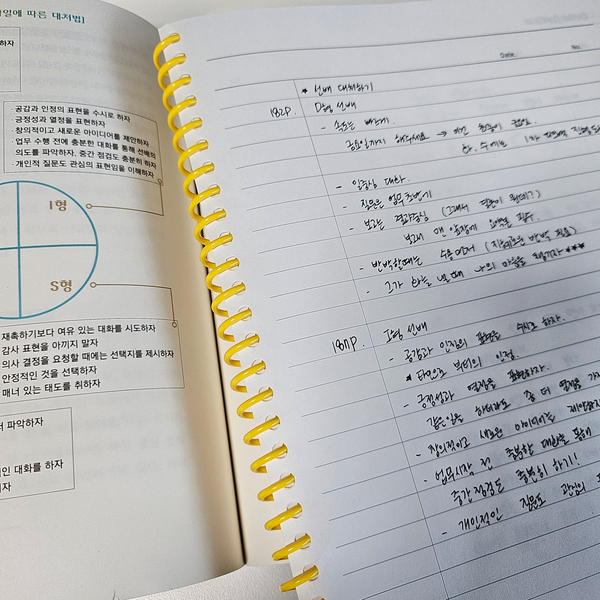 일에 따른 대처법]
하자
공감과 인정의 표현을 수시로 하자
긍정성과 열정을 표현하자
창의적이고 새로운 아이디어를 제안하자
업무 수행 전에 충분한 대화를 통해 선배의
의도를 파악하자, 중간 점검도 충분히 하자
개인적 질문도 관심의 표현임을 이해하자
I형
S형
재촉하기보다 여유 있는 대화를 시도하자
감사 표현을 아끼지 말자
의사 결정을 요청할 때에는 선택지를 제시하자
안정적인 것을 선택하자
매너 있는 태도를 취하자
파악하자
인 대화를 하자
자
Date.
No.
* 선배 대처하기
182p. D형 선배
- 속도는 빠르게.
금요일까지 해주세요 →
- 일중심 대화.
- 질문은 업무초반기
- 보고는 결과중심 (그래서 결론이 뭔데?)
- 반박할때는
- 그가 화를 낼 때 나의 마음을 지키자 ***
187p. I형 선배
- 공감과 인정의 표현을 수시로 하자.
* 타인으로부터의 인정.
- 긍정성과 열정을 표현하자.
같은일을 하더라도 좀 더 열정을
- 창의적이고 새로운 아이디어를 제안하자
- 업무시작 전 충분한 대화를 통해
중간점검도 충분히 하기!
- 개인적인 질문도 관심의